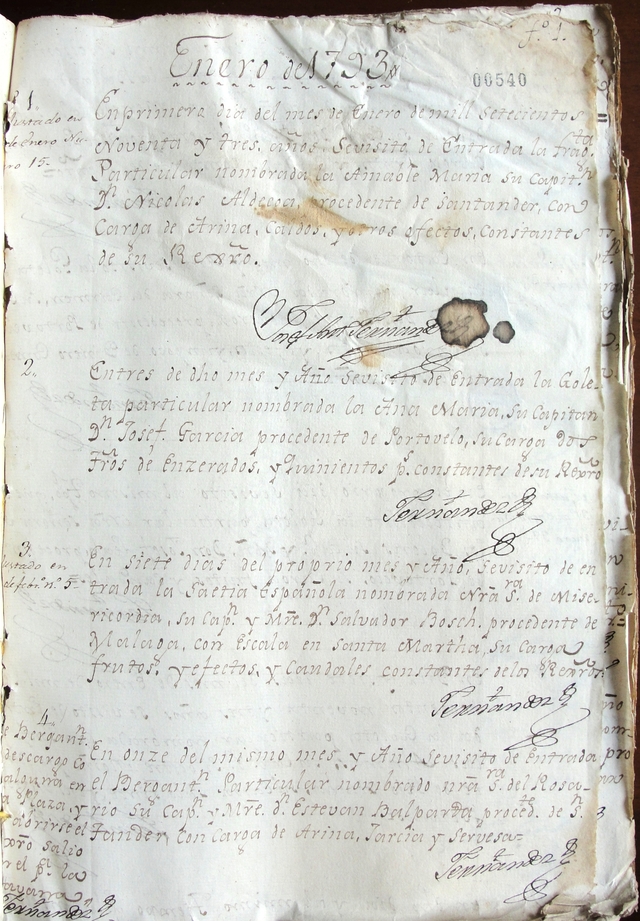 f.º 1.
Enero de 1793
00540
1.
Enprimero dia del mes de Enero de mill setecientos
Noventa y tres, años, Sevisitó, de Entrada la frag.ta
15-
Particular nombrada la Amable Maria su Capit.n
D.n Nicolas Aldecoa, procedente de Santander, con
Carga de Arina, Caldos, y otros efectos, Constantes
de su Rexr̃o.
Fernandez
2.
Entres de dho mes y Año Sevisitó de Entrada la Gole-
ta particular nombrada la Ana Maria, su Capitan
D.n Josef. Garcia procedente de Portovelo, su Carga dos
Fr̃os de Enzerados, y Quinientos p.s constantes de su Rexr̃o
Fernandez
3.
En siete dias del proprio mes y Año, Sevisitó de en
trada la Saetia Española nombrada Nr̃a S.ra de Mise-
ricordia, su Cap.n y Mr̃e. D.n Salvador Bosch. procedente de
Malaga, con Escala en Santa Martha, su Carga
frutos, y efectos, y Caudales constantes delos Rexr̃os
Fernandez
4.
Bergant.n
descargó
En onze del mismo mes, y Año Sevisitó de Entrada
el Bergant.n Particular nombrado nr̃a S.ra del Rosa-
Plaza, y
rio Su Cap.n y Mr̃e. d.n Estevan Balparda proced.te de S.n
tander, con Carga de Arina, Jarcia y Servesa-
salio
Fernandez
Fernandez